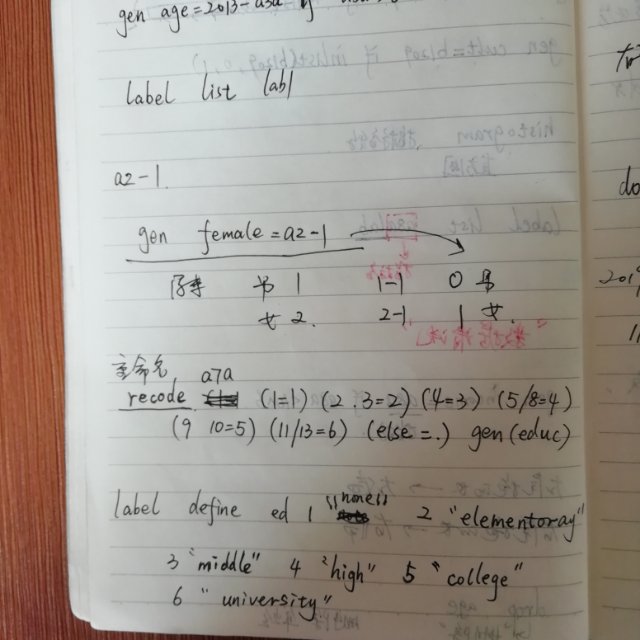 gen age=2013-a3a if
label list labl
a2-1.
gen female=a2-1
男 1 1-1 0 男
女 2. 2-1 1 女.
重命名 a7a
recode (1=1) (2 3=2) (4=3) (5/8=4)
(9 10=5) (11/13=6) (else=.) gen(educ)
label define ed 1 "none" 2 "elementoray"
3 "middle" 4 "high" 5 "college"
6 "university"